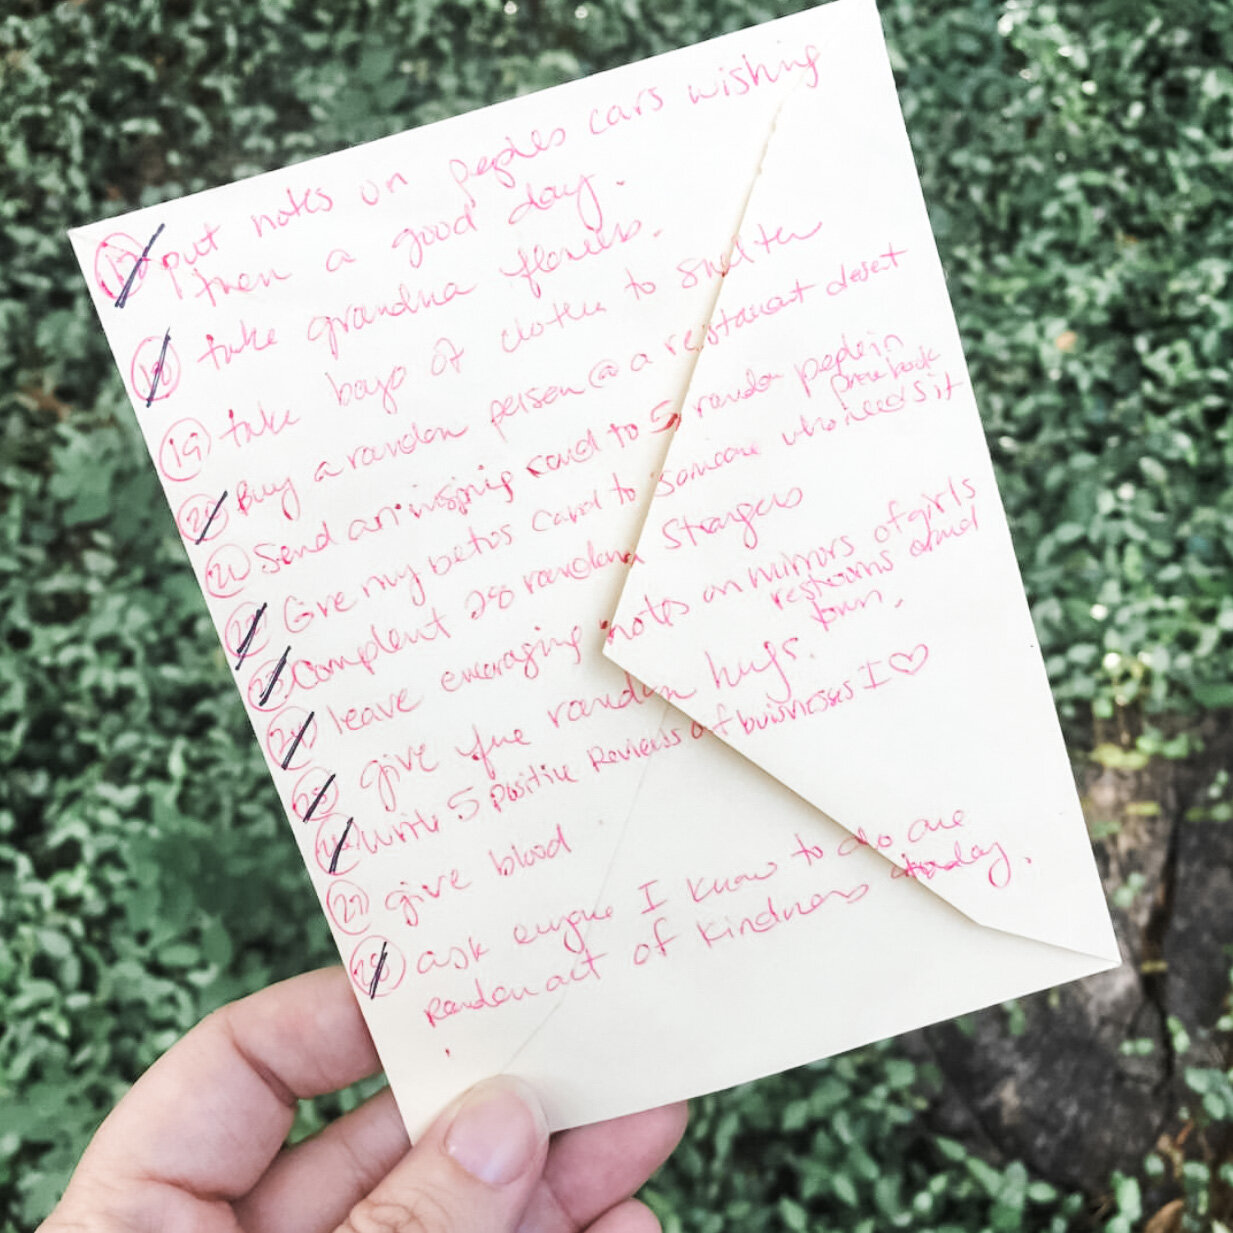 17 put notes on peoples cars wishing
them a good day.
18 take grandma flowers.
19 take bags of clothes to shelter
20 Buy a random person @ a restaurant desert
21 Send an inspiring card to 5 random people in
phone book
22 Give my betos card to someone who needs it
23 Complement 28 random strangers
24 leave encouraging notes on mirrors of girls
restrooms around
town.
25 give free random hugs.
26 write 5 positive Reviews of buisnesses I ♡
27 give blood
28 ask anyone I know to do one
random act of kindness today.